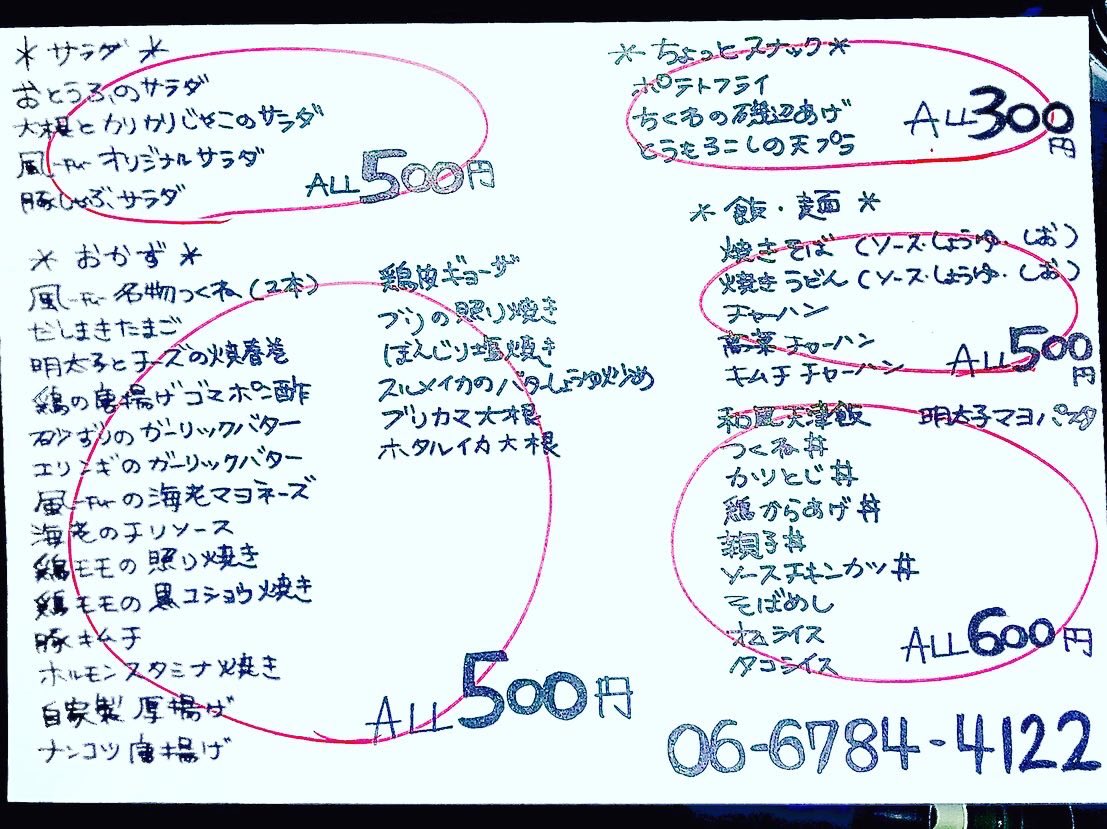 ＊サラダ＊
おとうふのサラダ
大根とカリカリじゃこのサラダ
風-Fu-オリジナルサラダ
豚しゃぶサラダ
ALL500円
＊おかず＊
風-Fu-名物つくね(2本)
だしまきたまご
明太子とチーズの焼春巻
鶏の唐揚げゴマポン酢
砂ずりのガーリックバター
エリンギのガーリックバター
風-Fu-の海老マヨネーズ
海老のチリソース
鶏モモの照り焼き
鶏モモの黒コショウ焼き
豚キムチ
ホルモンスタミナ焼き
自家製厚揚げ
ナンコツ唐揚げ
鶏皮ギョーザ
ブリの照り焼き
ぼんじり塩焼き
スルメイカのバターしょうゆ炒め
ブリカマ大根
ホタルイカ大根
ALL500円
＊ちょっとスナック＊
ポテトフライ
ちくわの磯辺あげ
とうもろこしの天プラ
ALL300円
＊飯・麺＊
焼きそば(ソース・しょうゆ・しお)
焼きうどん(ソース・しょうゆ・しお)
チャーハン
高菜チャーハン
キムチチャーハン
ALL500円
和風天津飯 明太子マヨパスタ
つくね丼
カツとじ丼
鶏からあげ丼
親子丼
ソースチキンカツ丼
そばめし
オムライス
タコライス
ALL600円
06-6784-4122